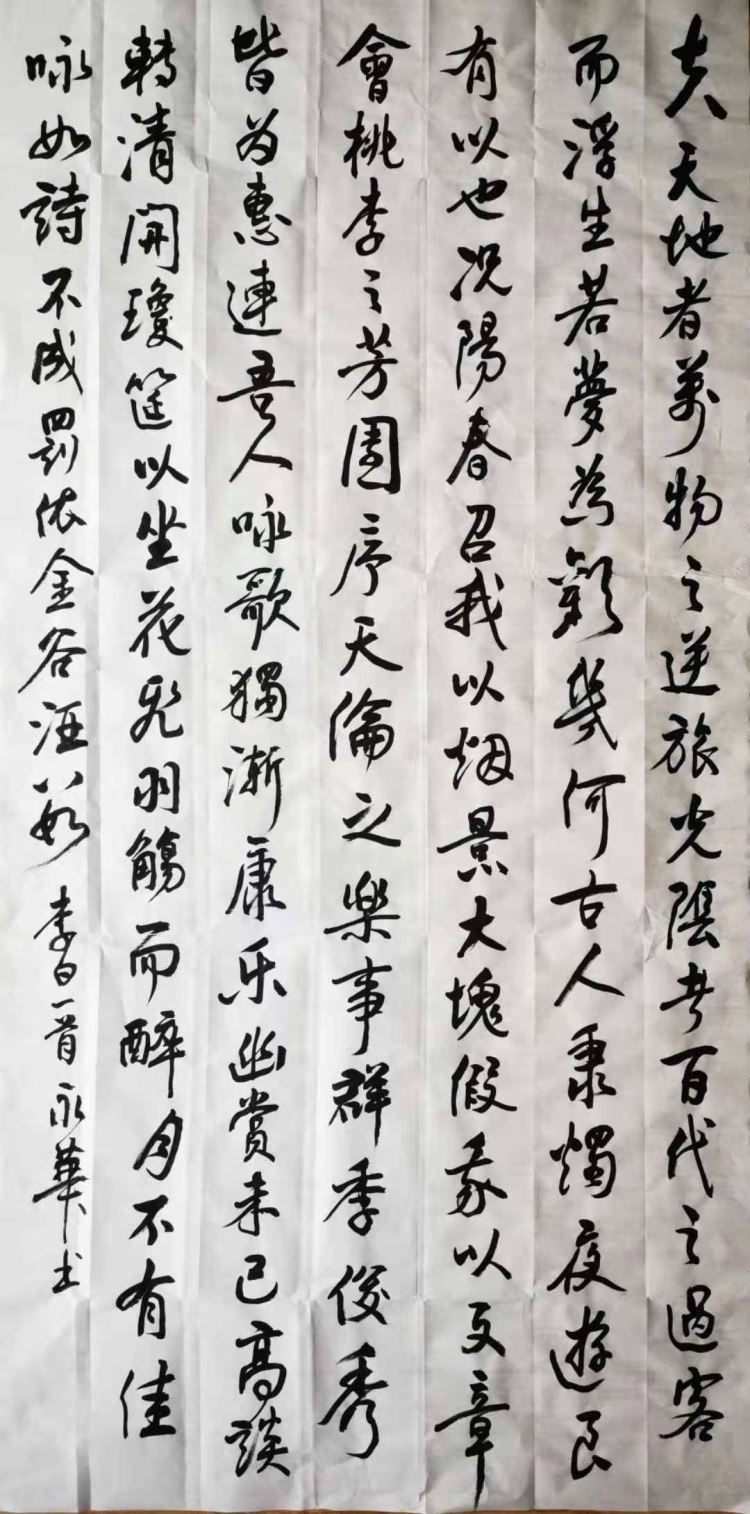 夫天地者萬物之逆旅光陰者百代之過客
而浮生若夢為歡幾何古人秉燭夜遊良
有以也况陽春召我以烟景大塊假我以文章
會桃李之芳園序天倫之樂事群季俊秀
皆为惠連吾人咏歌獨漸康乐幽賞未已高談
轉清開瓊筵以坐花飛羽觴而醉月不有佳
咏如詩不成罰依金谷酒數 李白一首 永華书